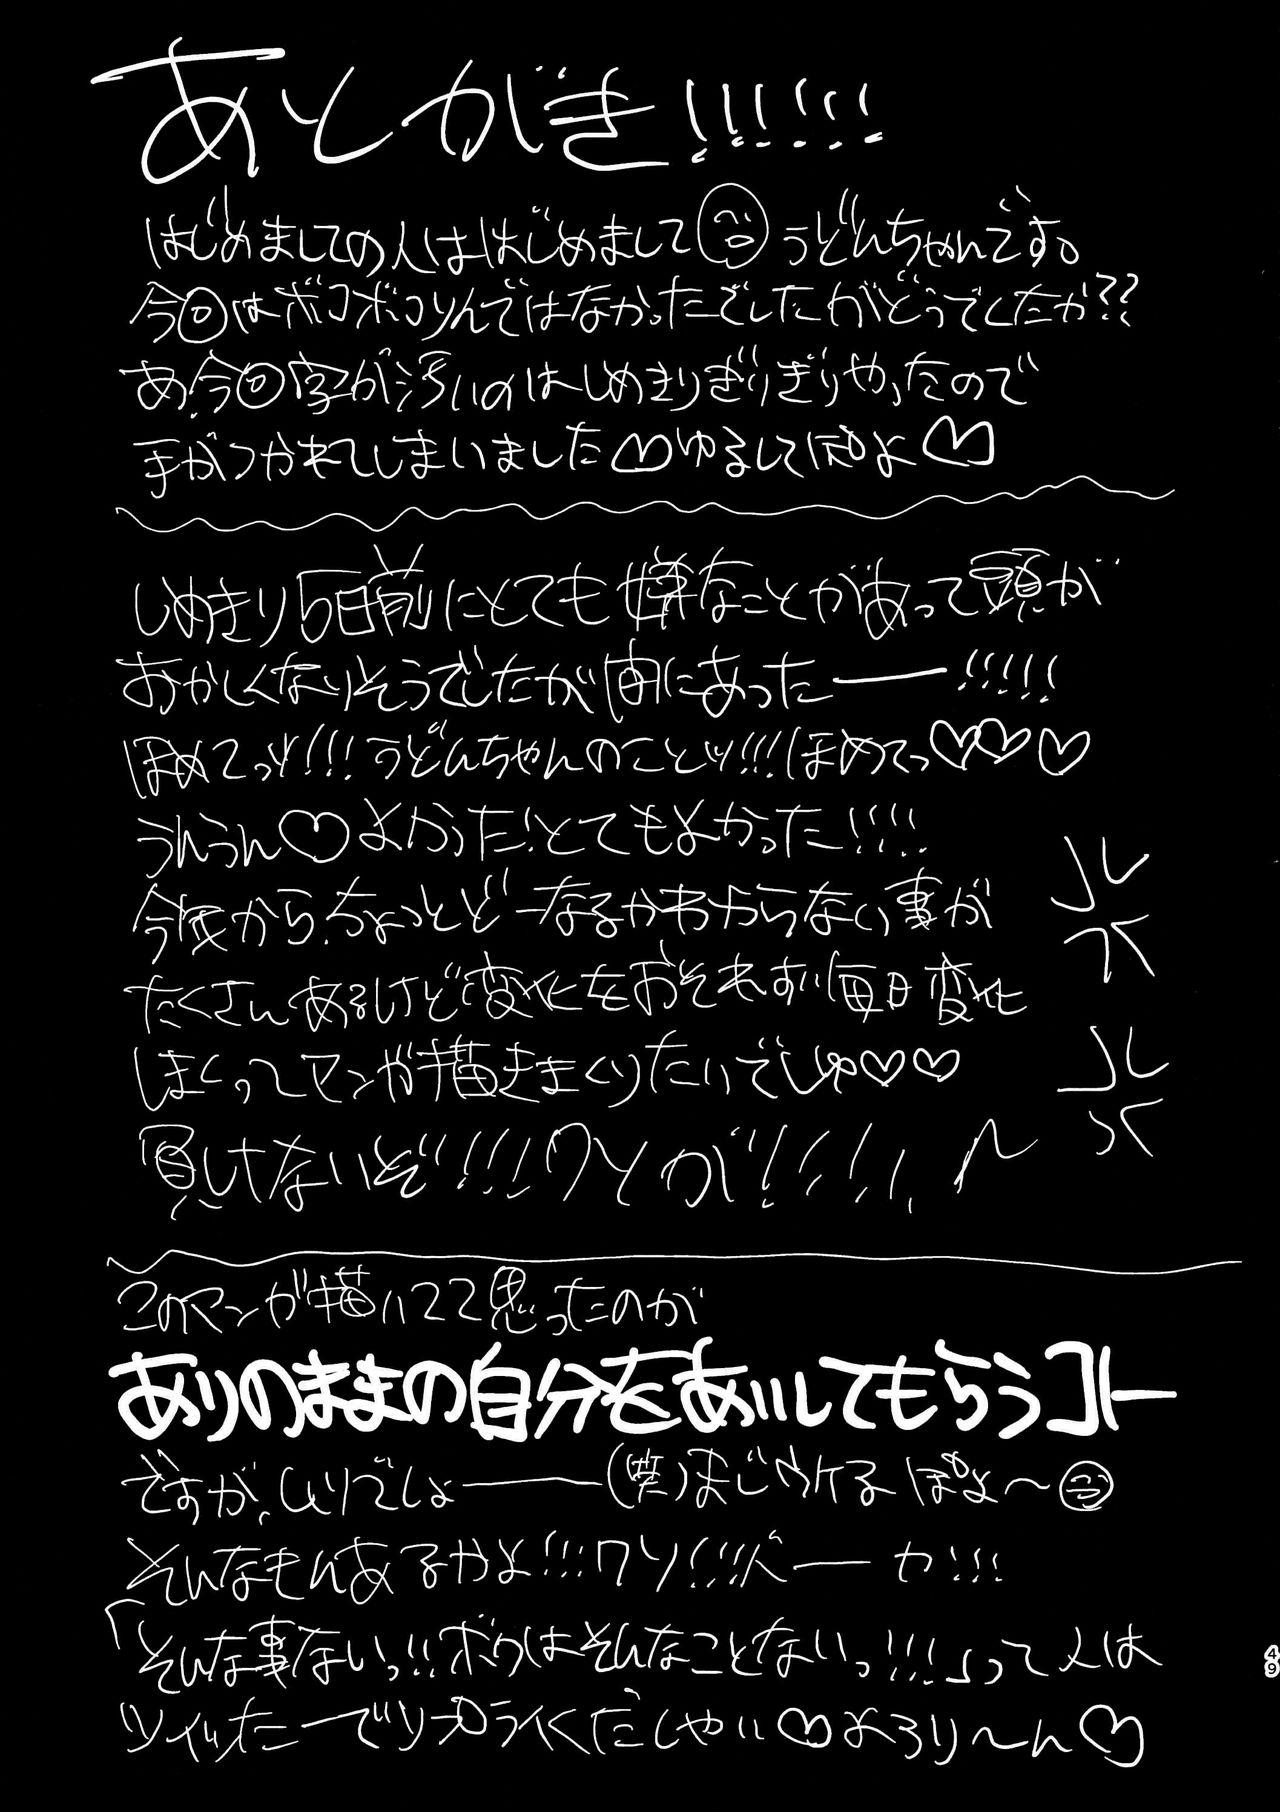 あとがき!!!!!!
はじめましての人ははじめまして うどんちゃんです。
今回はボコボコりんではなかったでしたがどうでしたか??
あ、今回字が汚いのはしめきりぎりぎりやったので
手がつかれてしまいました♡ゆるしてぽよ♡
しめきり5日前にとても嫌なことがあって頭が
おかしくなりそうでしたが間にあったー!!!!!
ほめてっッ!!!うどんちゃんのことッ!!!ほめてっ♡♡♡
うんうん♡よかった!とてもよかった!!!!
今後から、ちょっとどーなるかわからない事が
たくさんあるけど変化をおそれず毎日変化
しまくってマンガ描きまくりたいでしゅ♡♡
負けないぞ!!!!クソが!!!!!
このマンガ描いてて思ったのが
ありのままの自分をあいしてもらうコト
ですが、ムリでしょー(笑)まじウケるぽよ〜
そんなもんあるかよ!!!クソ!!!バーカ!!!
「そんな事ないっ!!ボクはそんなことないっ!!!」って人は
ツイッたーでリプライくだしゃい♡よろり〜ん♡
49